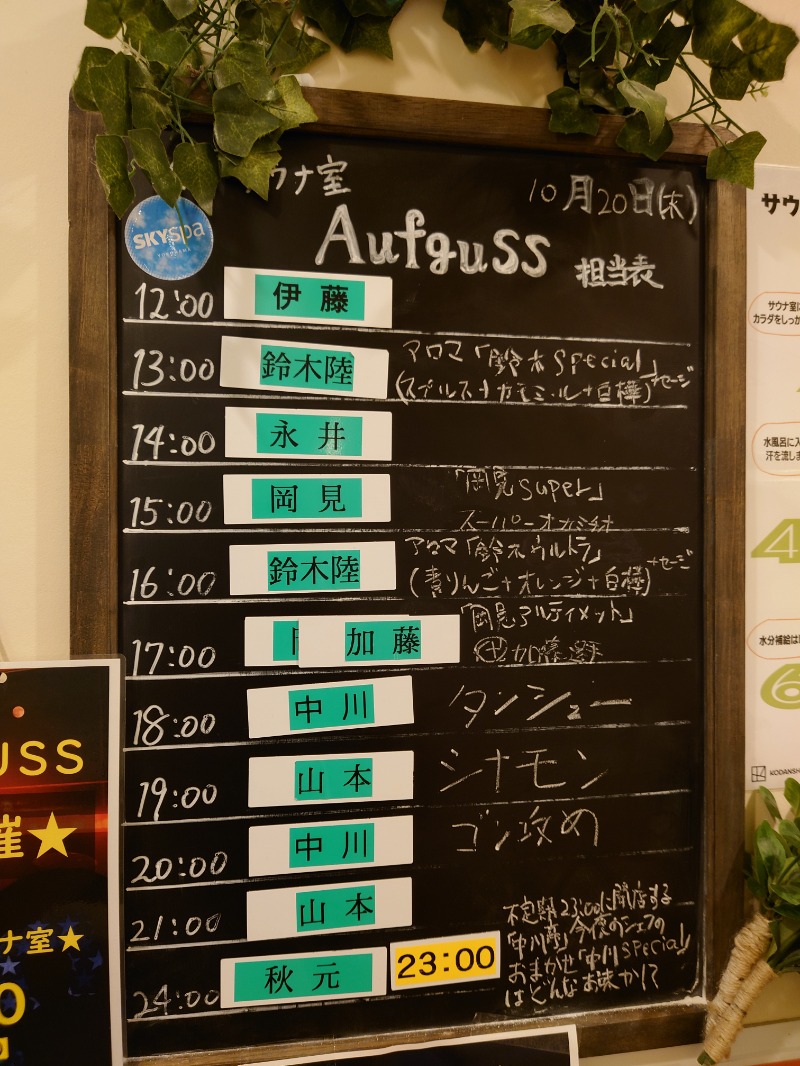 ウナ室
10月20日(木)
Aufguss 担当表
SKYSPA
YOKOHAMA
12:00 伊藤
13:00 鈴木陸 アロマ「鈴木special」
(スプルス+カモミール+白樺)+セージ
14:00 永井
15:00 岡見 「岡見super」
16:00 鈴木陸 アロマ「鈴木ウルトラ」
(青りんご+オレンジ+白樺)+セージ
17:00 加藤 「岡見アルティメット」
18:00 中川 タンシュー
19:00 山本 シナモン
20:00 中川 ゴン攻め
21:00 山本
24:00 秋元 23:00
不定期23:00に開店する
「中川 今夜のシェフの
おまかせ「中川special」
はどんなお味か!?
USS
催★
ナ室★
0
サウ
サウナ室に
カラダをしっか
水風呂に入
汗を流しま
4
水分補給は
6
KODANSH